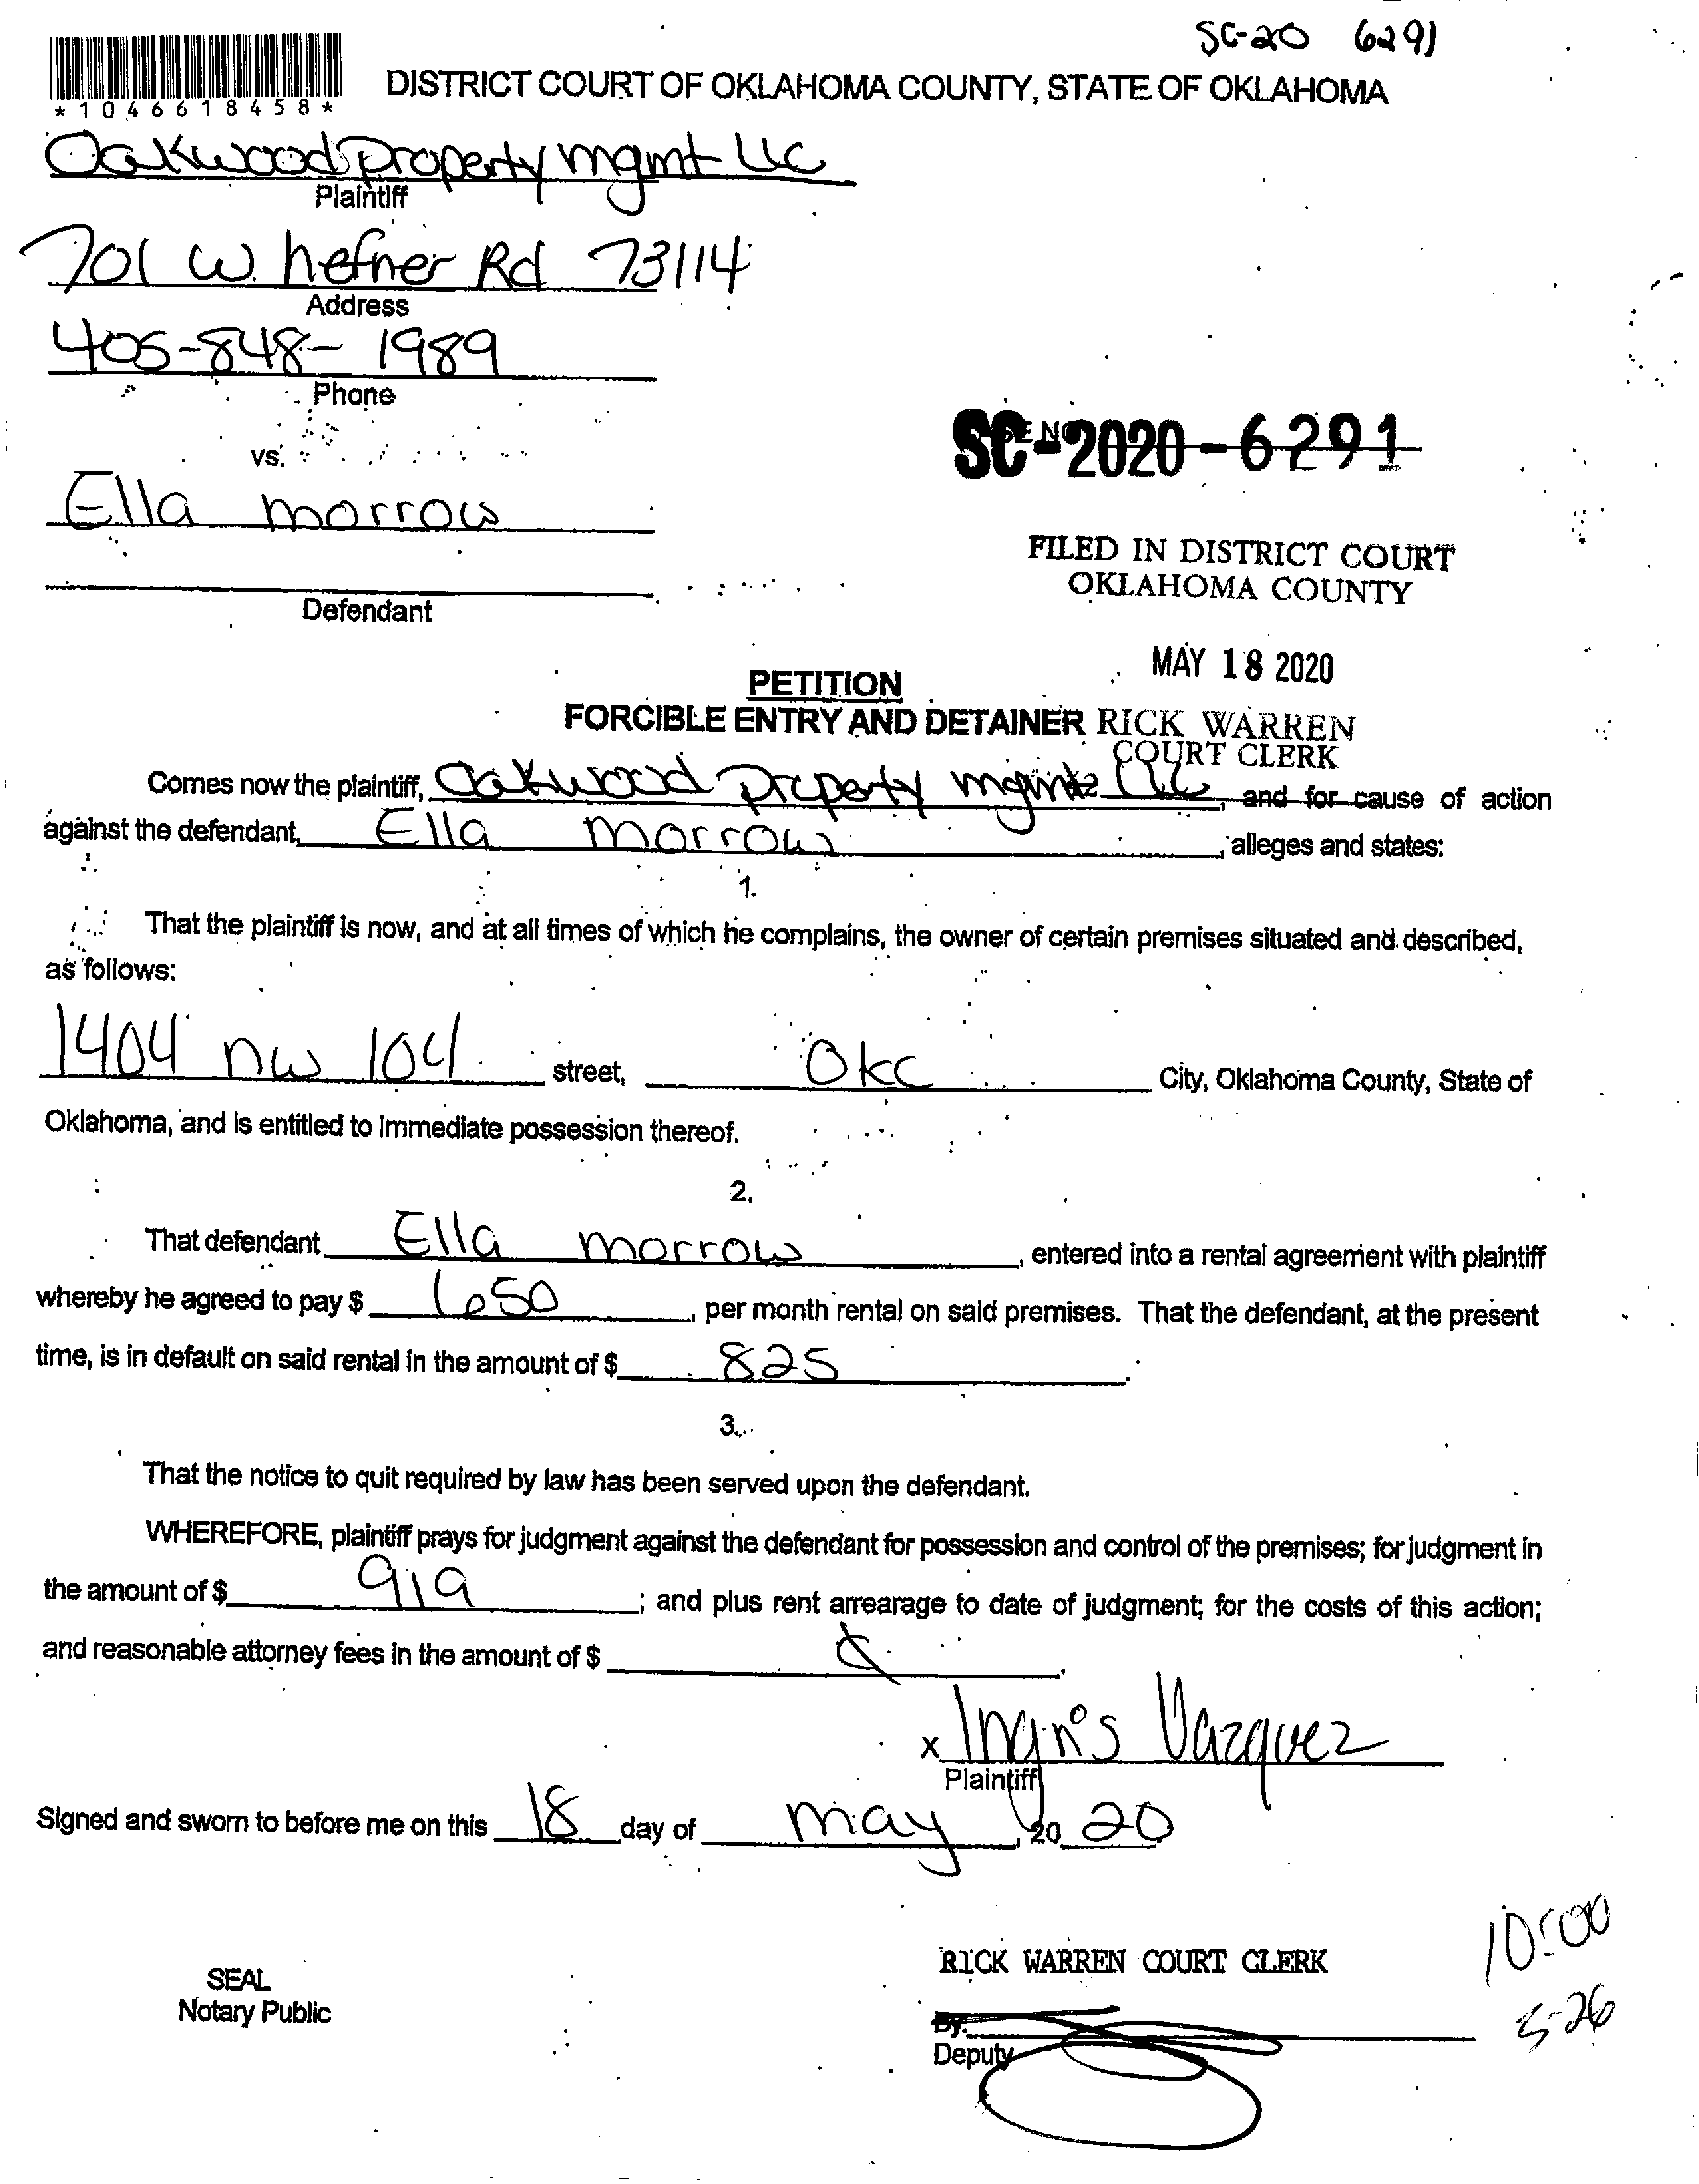 SC-20 6291
*1046618458*
DISTRICT COURT OF OKLAHOMA COUNTY, STATE OF OKLAHOMA
Oakwood property mgmt LLC
Plaintiff
701 W. hefner Rd 73114
Address
405-848-1989
Phone
vs.
SC-2020-6291
Ella morrow
FILED IN DISTRICT COURT
OKLAHOMA COUNTY
Defendant
MAY 18 2020
PETITION
FORCIBLE ENTRY AND DETAINER
RICK WARREN
COURT CLERK
Comes now the plaintiff, Oakwood Property mgmt LLC, and for cause of action
against the defendant, Ella morrow, alleges and states:
1.
That the plaintiff is now, and at all times of which he complains, the owner of certain premises situated and described,
as follows:
1404 nw 104 street, Okc City, Oklahoma County, State of
Oklahoma, and is entitled to immediate possession thereof.
2.
That defendant Ella morrow, entered into a rental agreement with plaintiff
whereby he agreed to pay $ 650, per month rental on said premises. That the defendant, at the present
time, is in default on said rental in the amount of $ 825.
3.
That the notice to quit required by law has been served upon the defendant.
WHEREFORE, plaintiff prays for judgment against the defendant for possession and control of the premises; for judgment in
the amount of $ 919; and plus rent arrearage to date of judgment; for the costs of this action;
and reasonable attorney fees in the amount of $
x Vazquez
Plaintiff
Signed and sworn to before me on this 18 day of may, 20 20
10:00
5-26
SEAL
Notary Public
RICK WARREN COURT CLERK
By:
Deputy